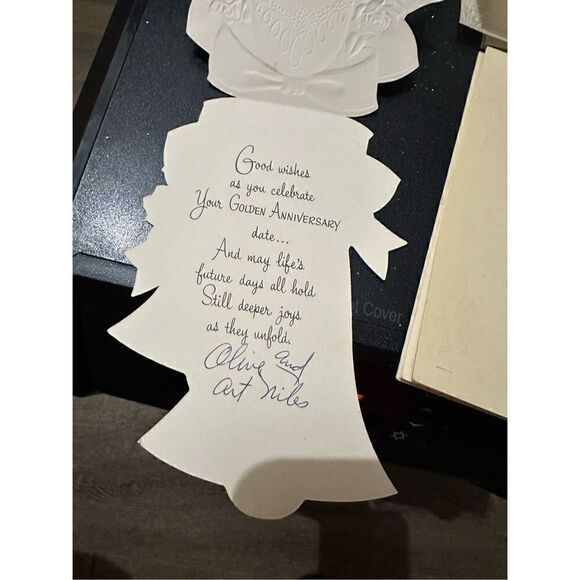 Good wishes
as you celebrate
Your GOLDEN ANNIVERSARY
date...
And may life's
future days all hold
Still deeper joys
as they unfold.
Olive and
Art Niles
Cover